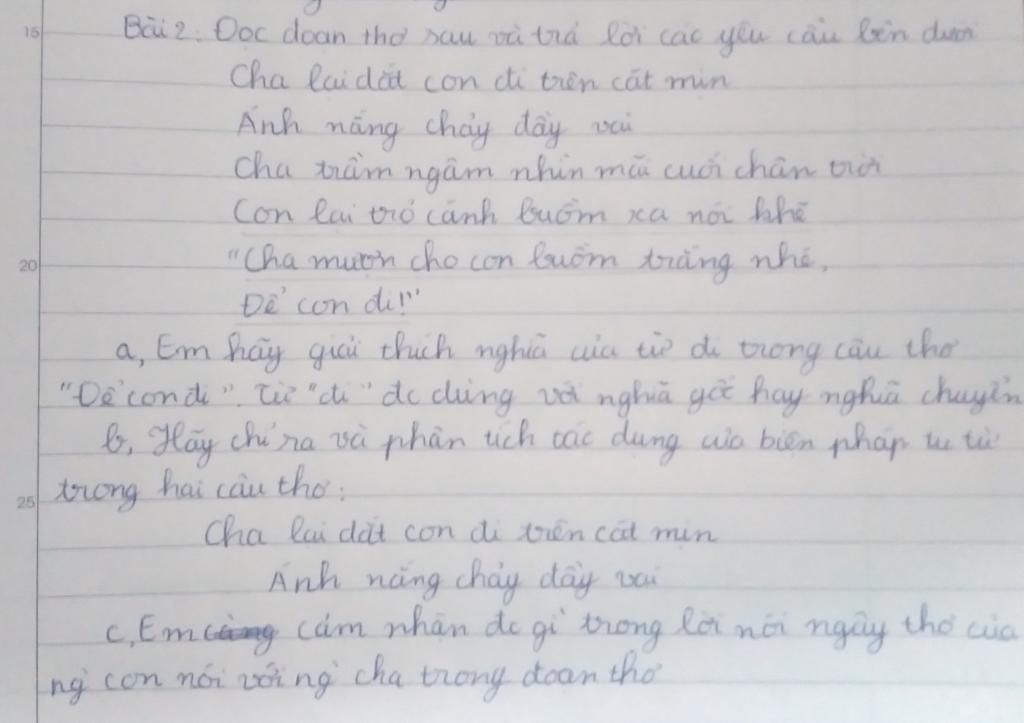 15 Bài 2: Đọc đoạn thơ sau và trả lời các yêu cầu bên dưới
Cha lại dắt con đi trên cát mịn
Ánh nắng chảy đầy vai
Cha trầm ngâm nhìn mãi cuối chân trời
Con lại trỏ cánh buồm xa nói khẽ
20 "Cha mượn cho con buồm trắng nhé,
Để con đi!"
a, Em hãy giải thích nghĩa của từ đi trong câu thơ
"Để con đi". Từ "đi" đc dùng với nghĩa gốc hay nghĩa chuyển
b, Hãy chỉ ra và phân tích tác dụng của biện pháp tu từ
25 trong hai câu thơ:
Cha lại dắt con đi trên cát mịn
Ánh nắng chảy đầy vai
c, Em cảm nhận đc gì trong lời nói ngây thơ của
ng' con nói với ng' cha trong đoạn thơ